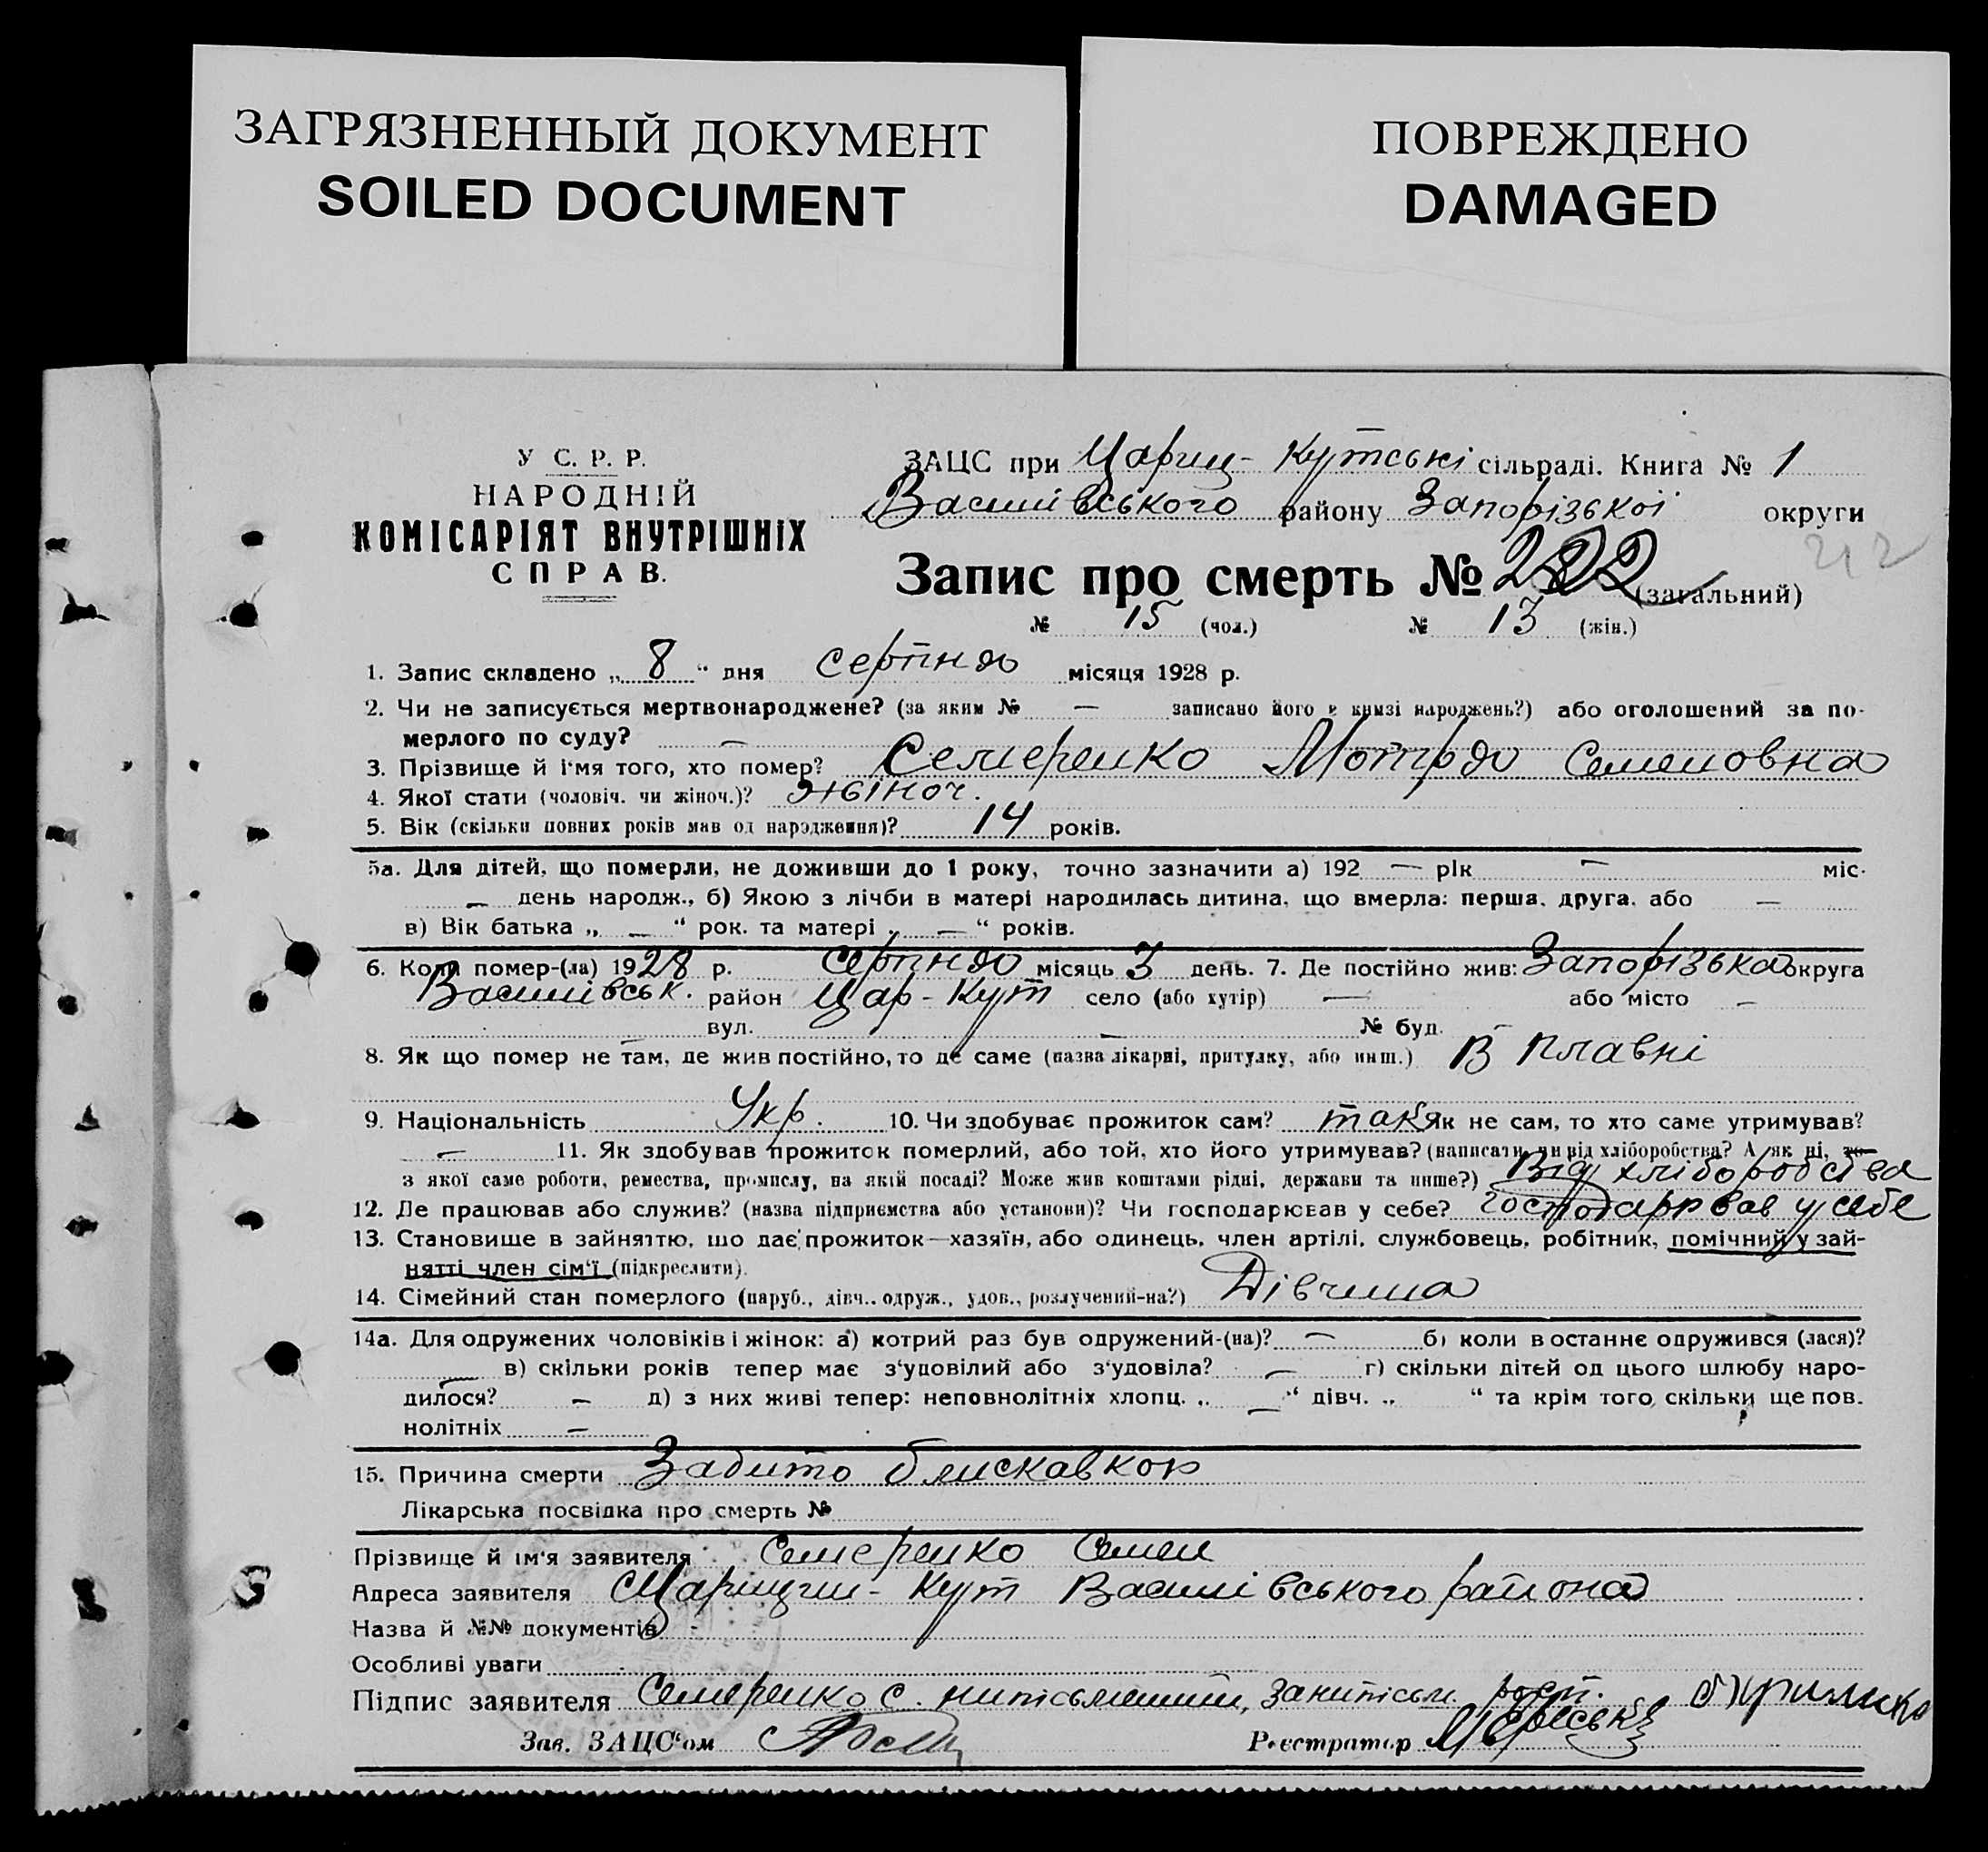 ЗАГРЯЗНЕННЫЙ ДОКУМЕНТ
SOILED DOCUMENT
ПОВРЕЖДЕНО
DAMAGED
У С. Р. Р.
НАРОДНІЙ
КОМІСАРІЯТ ВНУТРІШНІХ
СПРАВ.
ЗАЦС при Цариц-Кутські сільраді. Книга № 1
Василівського району Запорізької округи
212
Запис про смерть № (загальний)
№ 15 (чол.) № 13 (жін.)
1. Запис складено „ 8 “ дня серпня місяця 1928 р.
2. Чи не записується мертвонароджене? (за яким № — записано його в книзі народжень?) або оголошений за по-
мерлого по суду? —
3. Прізвище й ім'я того, хто помер? Семеренко Мотря Семеновна
4. Якої стати (чоловіч. чи жіноч.)? жіноч.
5. Вік (скільки повних років мав од народження)? 14 років.
5а. Для дітей, що померли, не доживши до 1 року, точно зазначити а) 192 — рік — міс.
— день народж., б) Якою з лічби в матері народилась дитина, що вмерла: перша, друга, або —
в) Вік батька „ — “ рок. та матері „ — “ років.
6. Коли помер-(ла) 1928 р. серпня місяць 3 день. 7. Де постійно жив: Запорізька округа
Василівськ. район Цар-Кут село (або хутір) — або місто —
вул. — № буд. —
8. Як що помер не там, де жив постійно, то де саме (назва лікарні, притулку, або инш.) В плавні
9. Національність Укр. 10. Чи здобуває прожиток сам? так Як не сам, то хто саме утримував?
— 11. Як здобував прожиток померлий, або той, хто його утримував? (написати чи від хліборобства? А як ні, то
з якої саме роботи, ремества, промислу, на якій посаді? Може жив коштами рідні, держави та инше?) Від хліборобства
12. Де працював або служив? (назва підприємства або установи)? Чи господарював у себе? господарював у себе
13. Становище в зайняттю, що дає прожиток—хазяїн, або одинець, член артілі, службовець, робітник, помічний у зай-
нятті член сім'ї (підкреслити).
14. Сімейний стан померлого (паруб., дівч., одруж., удов., розлучений-на?) Дівчина
14а. Для одружених чоловіків і жінок: а) котрий раз був одружений-(на)? — б) коли востаннє одружився (лася)?
— в) скільки років тепер має з'удовілий або з'удовіла? — г) скільки дітей од цього шлюбу наро-
дилося? — д) з них живі тепер: неповнолітніх хлопц. „ — “ дівч. „ “ та крім того, скільки ще пов.
нолітніх —
15. Причина смерти Забито блискавкою
Лікарська посвідка про смерть №
Прізвище й ім'я заявителя Семеренко Семен
Адреса заявителя Царицин-Кут Василівського района
Назва й №№ документів -
Особливі уваги
Підпис заявителя Семеренко С. нипісьменний, за нипісьм. расп.
Зав. ЗАЦС'ом Реєстратор